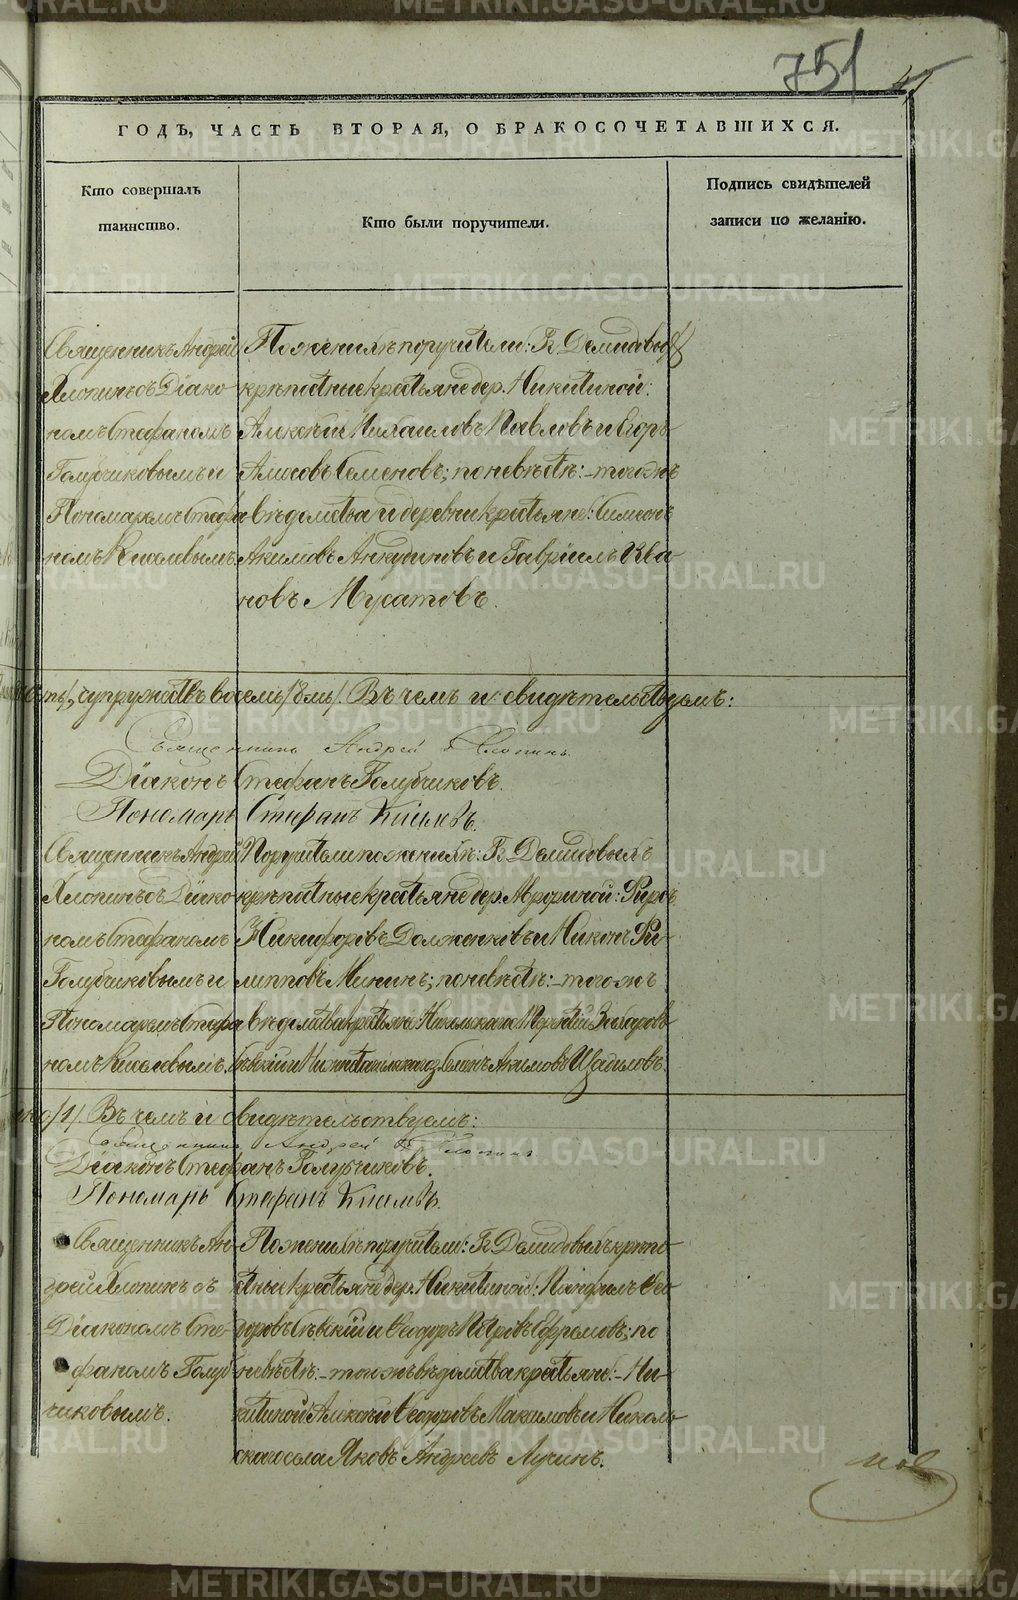 751
45
ГОДЪ, ЧАСТЬ ВТОРАЯ, О БРАКОСОЧЕТАВШИХСЯ.
Кто совершалъ таинство.
Кто были поручители.
Подпись свидѣтелей записи по желанію.
Священникъ Андрей
Хлопинъ съ Діако-
номъ Стефаномъ
Голубчиковымъ и
Пономаремъ Стефа
номъ Киселевымъ.
По женихѣ поручители: Гг. Демидовыхъ
крѣпостные крестьяне дер. Никитиной:
Алексѣй Михаиловъ Павловъ и Егоръ
Амосовъ Семеновъ; по невѣстѣ: тогожъ
вѣдомства и деревни крестьяне: Симеонъ
Акимовъ Анкудиновъ и Гавріилъ Ива
новъ Мусатовъ.
супружествъ восемь /8мь/. Въ чемъ и свидѣтельствуемъ:
Священникъ Андрей Хлопинъ.
Діаконъ Стефанъ Голубчиковъ.
Пономарь Стефанъ Киселевъ.
Священникъ Андрей
Хлопинъ съ Діако
номъ Стефаномъ
Голубчиковымъ и
Пономаремъ Стефа
номъ Киселевымъ.
Поручители по женихѣ: Гг. Демидовыхъ
крѣпостные крестьяне дер.
Никифоровъ Долженковъ и Никонъ Фи-
липповъ Мининъ; по невѣстѣ: тогожъ
вѣдомства крестьяне Никольскаго
Акимовъ
/1/. Въ чемъ и свидѣтельствуемъ:
Священникъ Андрей Хлопинъ
Діаконъ Стефанъ Голубчиковъ.
Пономарь Стефанъ Киселевъ.
Священникъ Ан-
дрей Хлопинъ съ
Діакономъ Сте-
фаномъ Голуб
чиковымъ.
По женихѣ поручители: Гг. Демидовыхъ крѣпо
стные крестьяне дер. Никитиной: Ѳео
доровъ и Ѳеодоръ Петровъ Ефремовъ; по
невѣстѣ: тогожъ вѣдомства крестьяне: Ни-
китиной Алексѣй Ѳеодоровъ Максимовъ и Николь
скаго села Яковъ Андреевъ Лузинъ.